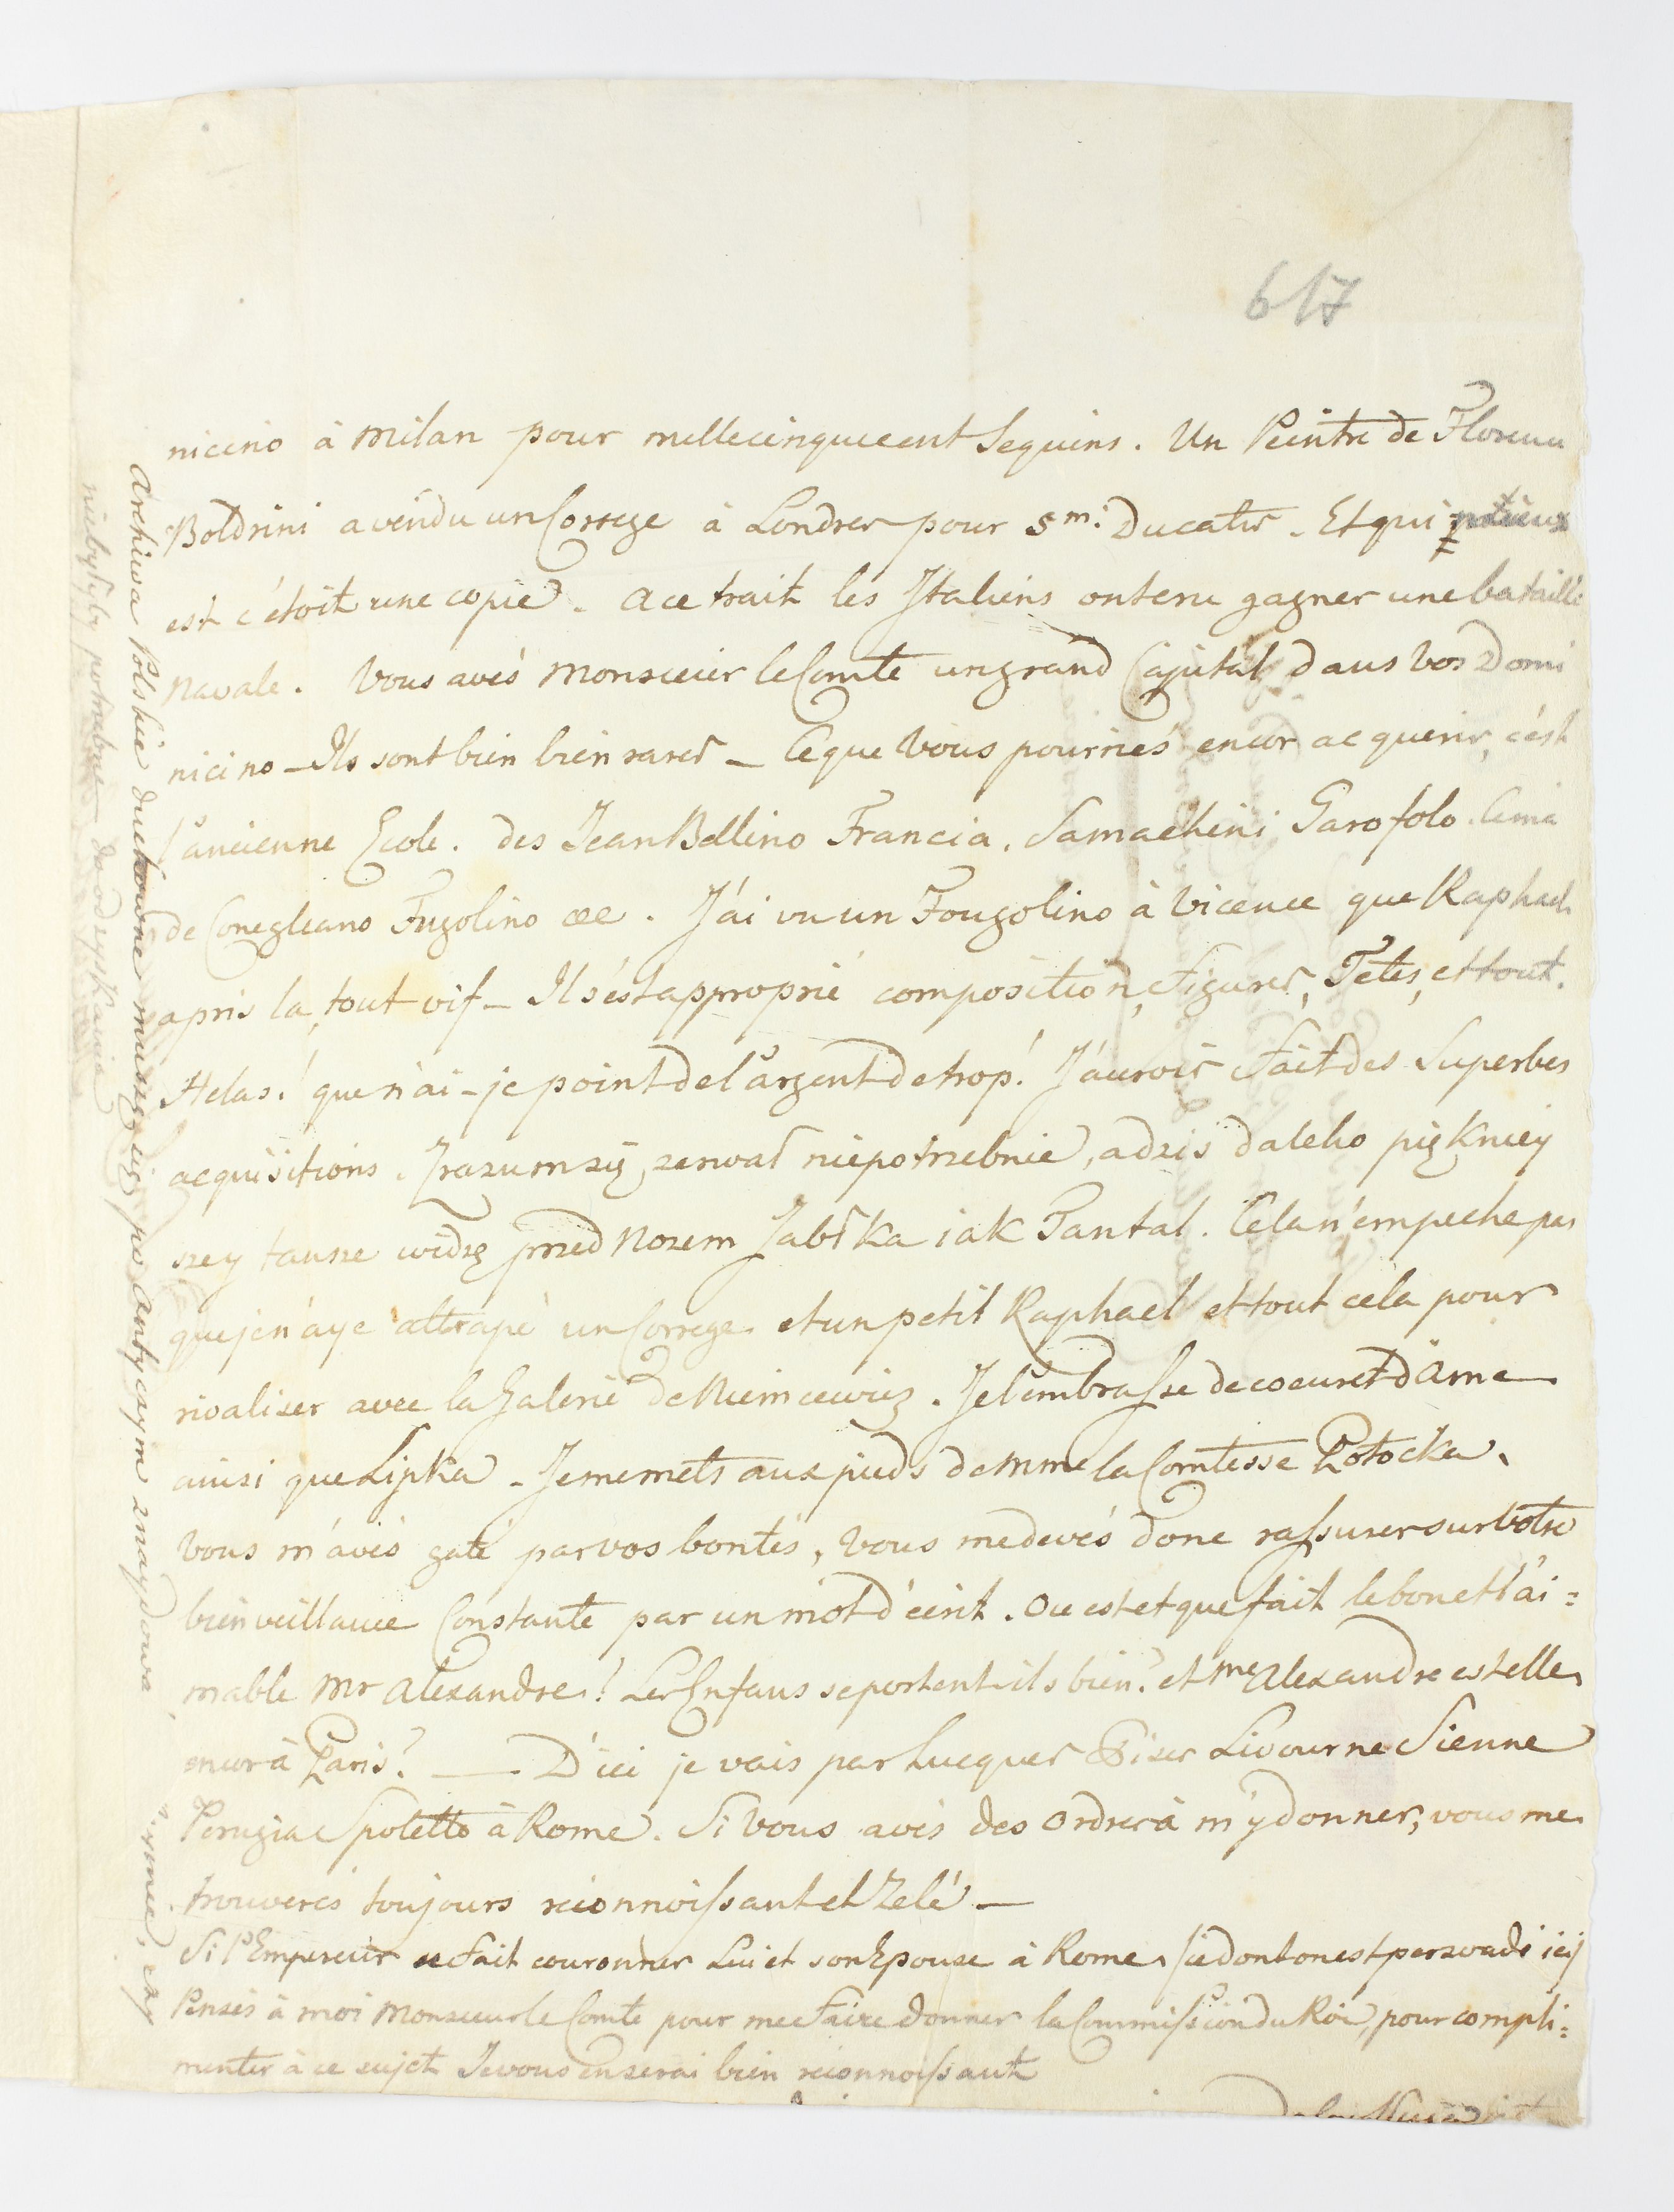 617
nicino à Milan pour millecinquecent Sequins. Un Peintre de Florence
Boldrini a vendu un Correge à Londres pour 5m. Ducats. Et qui
est c'étoit une copie. a ce trait les Italiens ont cru gagner une bataille
Navale. Vous avés Monsieur le Comte un grand Capital dans vos Domi
nicino _ Ils sont bien bien rares _ Ce que Vous pourriés encor acquerir, c'est
l'ancienne Ecole. des Jean Bellino Francia, Samachini Garofolo. Cima
de Conegleano Fugolino &c. J'ai vu un Fougolino à Vicence que Raphael
a pris la, tout vif _ Il s'est approprié composition, Figures, Tetes, et tout.
Helas! que n'ai-je point de l'argent de trop! J'aurois Fait des Superbes
acquisitions. I razum się zerwał niepotrzebnie, a dziś daleko piękniey
szey tansze widzę przed Nosem Jabłka iak Tantal. Cela n'empeche pas
que je n'aye attrapé un Correge et un petit Raphael et tout cela pour
rivaliser avec la Galerie de Niemcewicz. Je l'embrasse de coeur et d'Ame
ainsi que Lipka _ Je me mets aux pieds de Mme la Comtesse Potocka.
Vous m'avés gaté par vos bontés, Vous me devés donc rassurer sur votre
bienveillance Constante par un mot d'écrit. Ou est et que fait le bon et l'ai=
mable Mr Alexandre? Les Enfans se portent ils bien? et Me Alexandre est elle
encor à Paris? _ D'ici je vais par Lucques Pise Livourne Sienne
Perugia Spoletto à Rome. Si Vous avés des Ordres à m'y donner, vous me
trouverés toujours reconnoissant et Zelé _
Si l'Empereur se fait couronner Lui et son Epouse à Rome (ce dont on est perswadé icij
Pensés à moi Monsieur le Comte pour me Faire donner la Commission du Roi, pour compli=
menter à ce sujet Je vous en serai bien reconnoissant
Archiwa Polskie duchowne muszą się po Antycaym znaydować,
niebyłyby potrzebne do odzyskania